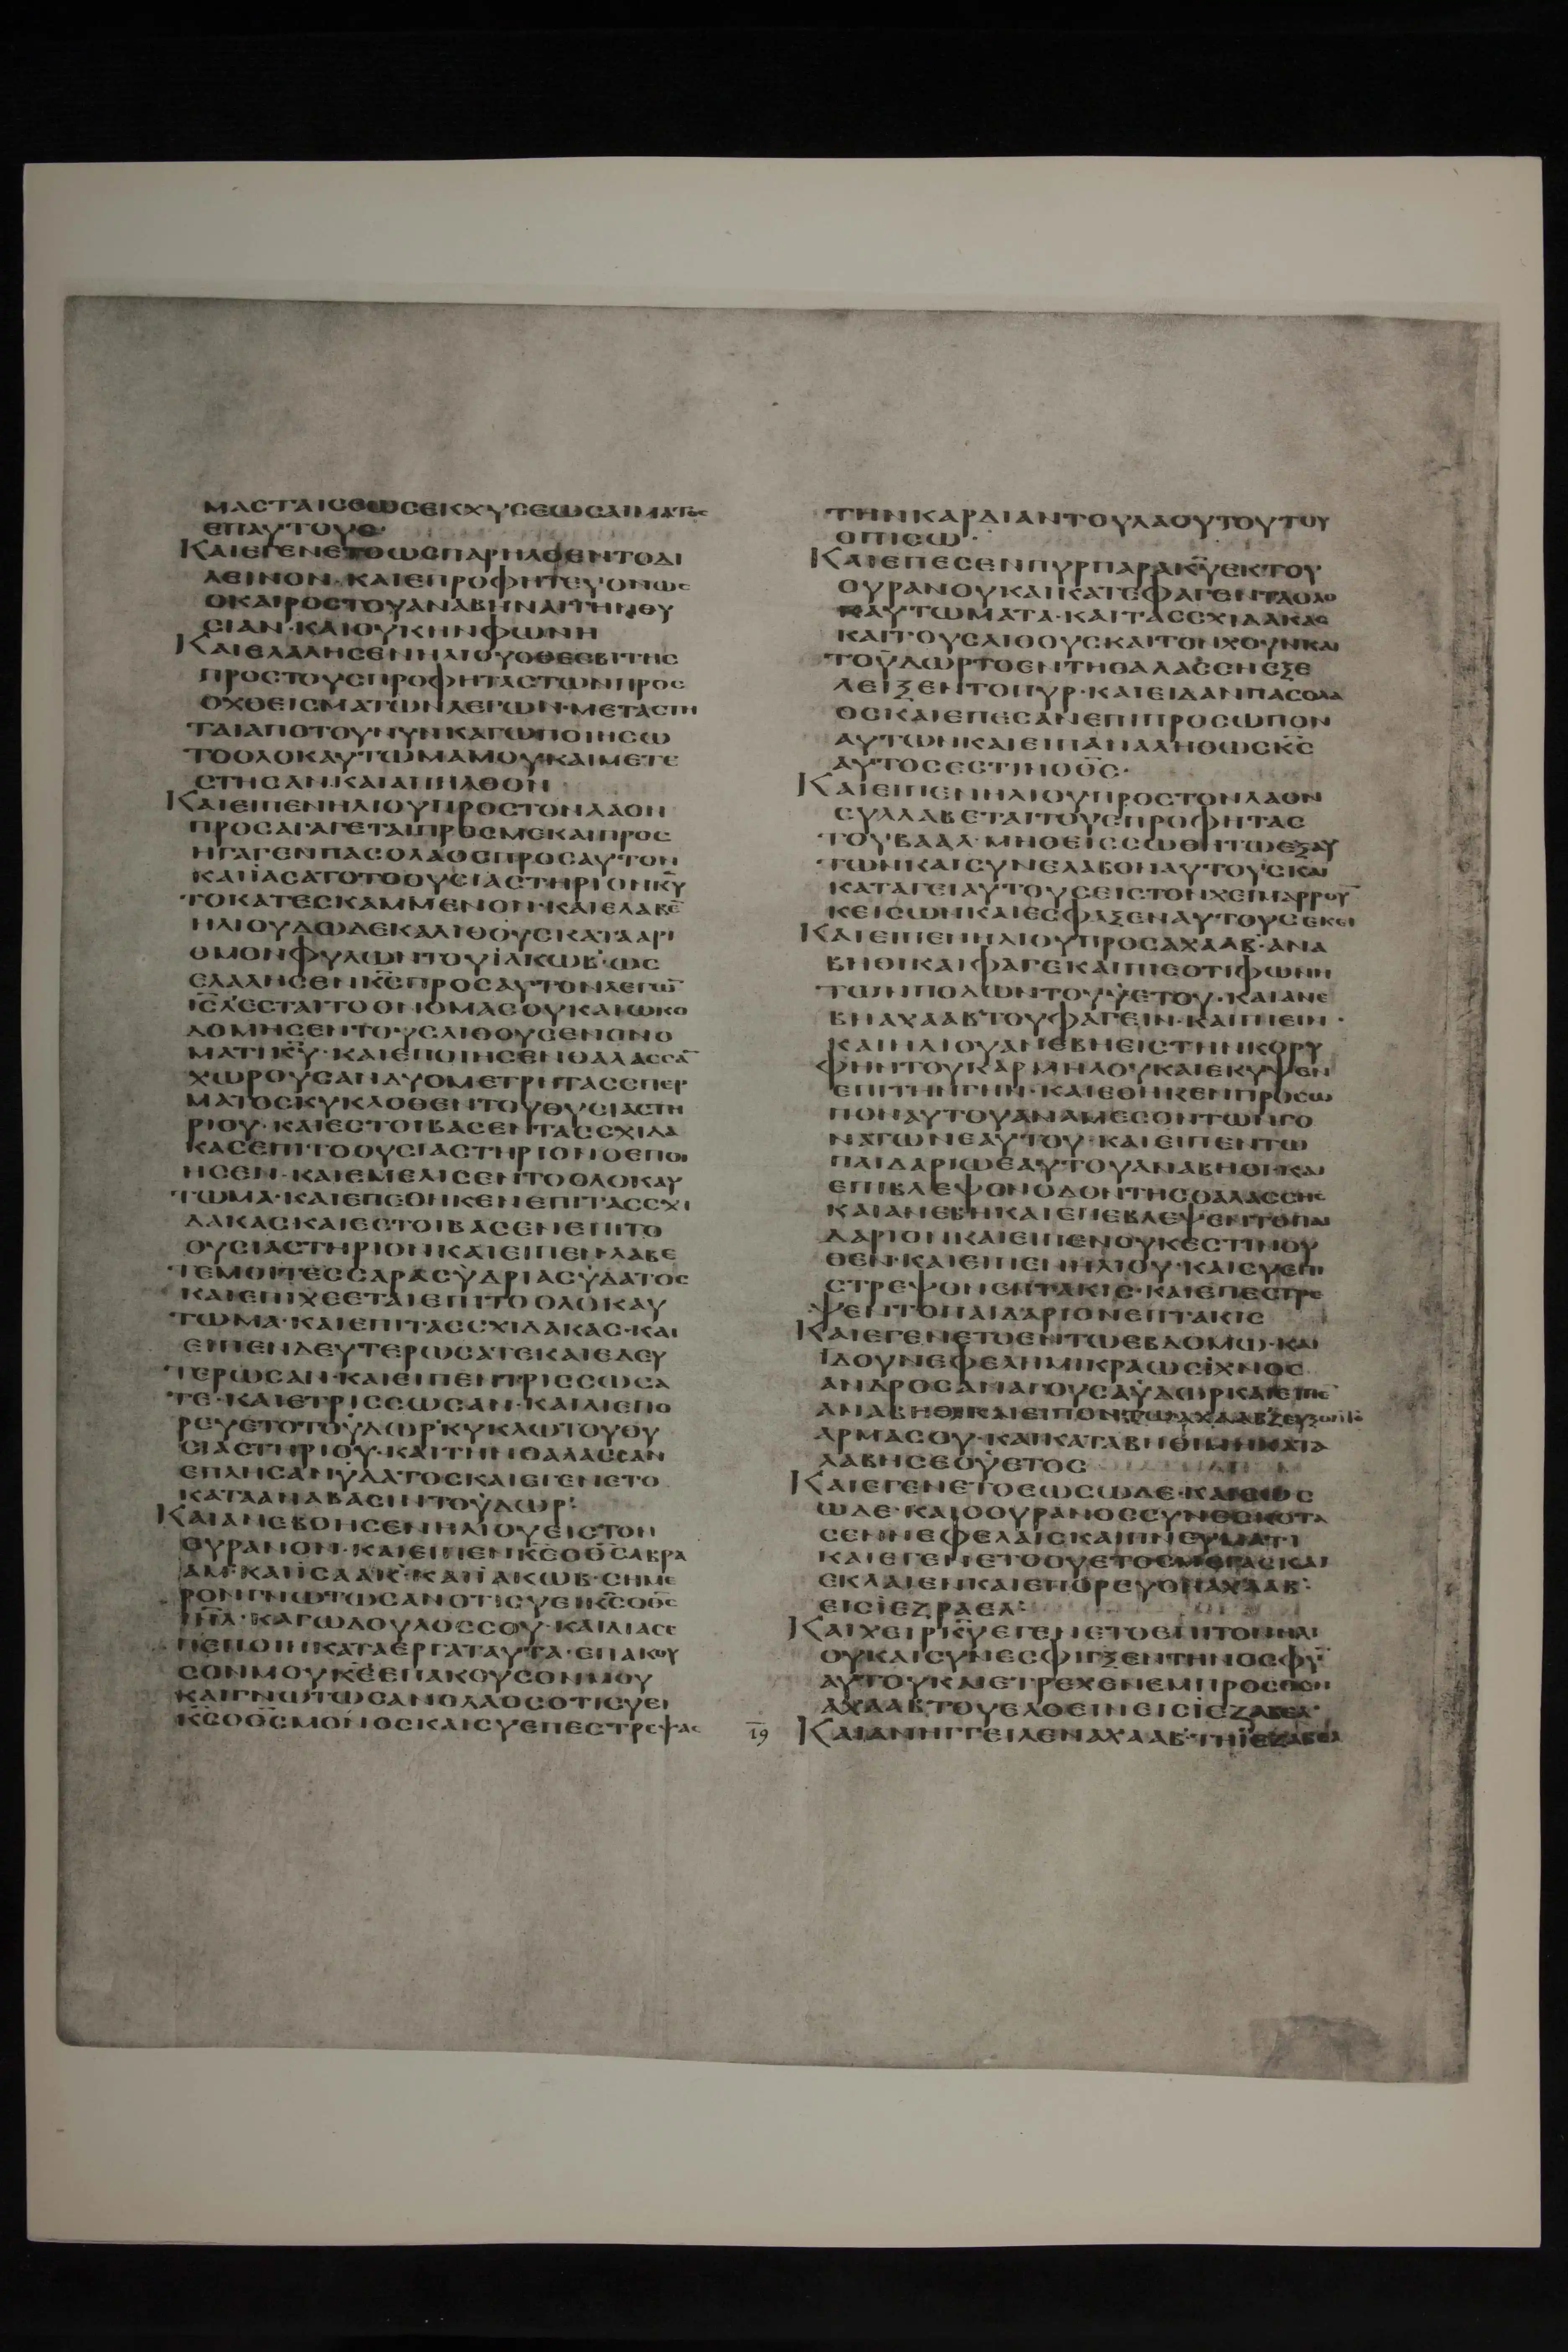 ΜΑΣΤΑΙΣΕΩΣΕΚΧΥΣΕΩΣΑΙΜΑΤΟΣ
ΕΠΑΥΤΟΥΣ
ΚΑΙΕΓΕΝΕΤΟΩΣΠΑΡΗΛΘΕΝΤΟΔΙ
ΛΕΙΝΟΝ·ΚΑΙΕΠΡΟΦΗΤΕΥΟΝΩΣ
ΟΚΑΙΡΟΣΤΟΥΑΝΑΒΗΝΑΙΤΗΝΘΥ
ΣΙΑΝ·ΚΑΙΟΥΚΗΝΦΩΝΗ
ΚΑΙΕΛΑΛΗΣΕΝΗΛΙΟΥΟΘΕΣΒΙΤΗΣ
ΠΡΟΣΤΟΥΣΠΡΟΦΗΤΑΣΤΩΝΠΡΟΣ
ΟΧΘΕΙΣΜΑΤΩΝΛΕΓΩΝ·ΜΕΤΑΣΤΗ
ΤΑΙΑΠΟΤΟΥΝΥΝΚΑΓΩΠΟΙΗΣΩ
ΤΟΟΛΟΚΑΥΤΩΜΑΜΟΥΚΑΙΜΕΤΕ
ΣΤΗΣΑΝ·ΚΑΙΑΠΗΛΘΟΝ
ΚΑΙΕΙΠΕΝΗΛΙΟΥΠΡΟΣΤΟΝΛΑΟΝ
ΠΡΟΣΑΓΑΓΕΤΑΙΠΡΟΣΜΕΚΑΙΠΡΟΣ
ΗΓΑΓΕΝΠΑΣΟΛΑΟΣΠΡΟΣΑΥΤΟΝ
ΚΑΙΪΑΣΑΤΟΤΟΘΥΣΙΑΣΤΗΡΙΟΝΚ̅Υ̅
ΤΟΚΑΤΕΣΚΑΜΜΕΝΟΝ·ΚΑΙΕΛΑΒΕ̅
ΗΛΙΟΥΔΩΔΕΚΑΛΙΘΟΥΣΚΑΤΑΑΡΙ
ΘΜΟΝΦΥΛΩΝΤΟΥΪΑΚΩΒ·ΩΣ
ΕΛΑΛΗΣΕΝΚ̅Σ̅ΠΡΟΣΑΥΤΟΝΛΕΓΩ̅
Ι̅Σ̅Λ̅ΕΣΤΑΙΤΟΟΝΟΜΑΣΟΥΚΑΙΩΚΟ
ΔΟΜΗΣΕΝΤΟΥΣΛΙΘΟΥΣΕΝΟΝΟ
ΜΑΤΙΚ̅Υ̅·ΚΑΙΕΠΟΙΗΣΕΝΘΑΛΑΣΣΑ̅
ΧΩΡΟΥΣΑΝΔΥΟΜΕΤΡΗΤΑΣΣΠΕΡ
ΜΑΤΟΣΚΥΚΛΟΘΕΝΤΟΥΘΥΣΙΑΣΤΗ
ΡΙΟΥ·ΚΑΙΕΣΤΟΙΒΑΣΕΝΤΑΣΣΧΙΔΑ
ΚΑΣΕΠΙΤΟΘΥΣΙΑΣΤΗΡΙΟΝΟΕΠΟΙ
ΗΣΕΝ·ΚΑΙΕΜΕΛΙΣΕΝΤΟΟΛΟΚΑΥ
ΤΩΜΑ·ΚΑΙΕΠΕΘΗΚΕΝΕΠΙΤΑΣΣΧΙ
ΔΑΚΑΣΚΑΙΕΣΤΟΙΒΑΣΕΝΕΠΙΤΟ
ΘΥΣΙΑΣΤΗΡΙΟΝΚΑΙΕΙΠΕΝΛΑΒΕ
ΤΕΜΟΙΤΕΣΣΑΡΑΣΥΔΡΙΑΣΥΔΑΤΟΣ
ΚΑΙΕΠΙΧΕΕΤΑΙΕΠΙΤΟΟΛΟΚΑΥ
ΤΩΜΑ·ΚΑΙΕΠΙΤΑΣΣΧΙΔΑΚΑΣ·ΚΑΙ
ΕΙΠΕΝΔΕΥΤΕΡΩΣΑΤΕΚΑΙΕΔΕΥ
ΤΕΡΩΣΑΝ·ΚΑΙΕΙΠΕΝΤΡΙΣΣΩΣΑ
ΤΕ·ΚΑΙΕΤΡΙΣΣΩΣΑΝ·ΚΑΙΔΙΕΠΟ
ΡΕΥΕΤΟΤΟΥΔΩΡΚΥΚΛΩΤΟΥΘΥ
ΣΙΑΣΤΗΡΙΟΥ·ΚΑΙΤΗΝΘΑΛΑΣΣΑΝ
ΕΠΛΗΣΑΝΥΔΑΤΟΣΚΑΙΕΓΕΝΕΤΟ
ΚΑΤΑΑΝΑΒΑΣΙΝΤΟΥΔΩΡ·
ΚΑΙΑΝΕΒΟΗΣΕΝΗΛΙΟΥΕΙΣΤΟΝ
ΟΥΡΑΝΟΝ·ΚΑΙΕΙΠΕΝΚ̅Σ̅ΟΘ̅Σ̅ΑΒΡΑ
ΑΜ·ΚΑΙΪΣΑΑΚ·ΚΑΙΪΑΚΩΒ·ΣΗΜΕ
ΡΟΝΓΝΩΤΩΣΑΝΟΤΙΣΥΕΙΚ̅Σ̅ΟΘ̅Σ̅
Ι̅Η̅Λ̅·ΚΑΓΩΔΟΥΛΟΣΣΟΥ·ΚΑΙΔΙΑΣΕ
ΠΕΠΟΙΗΚΑΤΑΕΡΓΑΤΑΥΤΑ·ΕΠΑΚΟΥ
ΣΟΝΜΟΥΚ̅Ε̅ΕΠΑΚΟΥΣΟΝΜΟΥ
ΚΑΙΓΝΩΤΩΣΑΝΟΛΑΟΣΟΤΙΣΥΕΙ
Κ̅Σ̅ΟΘ̅Σ̅ΜΟΝΟΣΚΑΙΣΥΕΠΕΣΤΡΕΨΑΣ
ΤΗΝΚΑΡΔΙΑΝΤΟΥΛΑΟΥΤΟΥΤΟΥ
ΟΠΙΣΩ·
ΚΑΙΕΠΕΣΕΝΠΥΡΠΑΡΑΚ̅Υ̅ΕΚΤΟΥ
ΟΥΡΑΝΟΥΚΑΙΚΑΤΕΦΑΓΕΝΤΑΟΛΟ
ΚΑΥΤΩΜΑΤΑ·ΚΑΙΤΑΣΣΧΙΔΑΚΑΣ
ΚΑΙΤΟΥΣΛΙΘΟΥΣΚΑΙΤΟΝΧΟΥΝΚΑΙ
ΤΟΥΔΩΡΤΟΕΝΤΗΘΑΛΑΣΣΗΕΞΕ
ΛΕΙΞΕΝΤΟΠΥΡ·ΚΑΙΕΙΔΑΝΠΑΣΟΛΑ
ΟΣΚΑΙΕΠΕΣΑΝΕΠΙΠΡΟΣΩΠΟΝ
ΑΥΤΩΝΚΑΙΕΙΠΑΝΑΛΗΘΩΣΚ̅Σ̅
ΑΥΤΟΣΕΣΤΙΝΟΘ̅Σ̅·
ΚΑΙΕΙΠΕΝΗΛΙΟΥΠΡΟΣΤΟΝΛΑΟΝ
ΣΥΛΛΑΒΕΤΑΙΤΟΥΣΠΡΟΦΗΤΑΣ
ΤΟΥΒΑΑΛ·ΜΗΘΕΙΣΣΩΘΗΤΩΕΞΑΥ
ΤΩΝΚΑΙΣΥΝΕΛΑΒΟΝΑΥΤΟΥΣΚΑΙ
ΚΑΤΑΓΕΙΑΥΤΟΥΣΕΙΣΤΟΝΧΕΙΜΑΡΡΟΥ̅
ΚΕΙΣΩΝΚΑΙΕΣΦΑΞΕΝΑΥΤΟΥΣΕΚΕΙ
ΚΑΙΕΙΠΕΝΗΛΙΟΥΠΡΟΣΑΧΑΑΒ·ΑΝΑ
ΒΗΘΙΚΑΙΦΑΓΕΚΑΙΠΙΕΟΤΙΦΩΝΗ
ΤΩΝΠΟΔΩΝΤΟΥΥΕΤΟΥ·ΚΑΙΑΝΕ
ΒΗΑΧΑΑΒΤΟΥΦΑΓΕΙΝ·ΚΑΙΠΙΕΙΝ·
ΚΑΙΗΛΙΟΥΑΝΕΒΗΕΙΣΤΗΝΚΟΡΥ
ΦΗΝΤΟΥΚΑΡΜΗΛΟΥΚΑΙΕΚΥΨΕΝ
ΕΠΙΤΗΝΓΗΝ·ΚΑΙΕΘΗΚΕΝΠΡΟΣΩ
ΠΟΝΑΥΤΟΥΑΝΑΜΕΣΟΝΤΩΝΓΟ
ΝΑΤΩΝΕΑΥΤΟΥ·ΚΑΙΕΙΠΕΝΤΩ
ΠΑΙΔΑΡΙΩΕΑΥΤΟΥΑΝΑΒΗΘΙ·ΚΑΙ
ΕΠΙΒΛΕΨΟΝΟΔΟΝΤΗΣΘΑΛΑΣΣΗΣ
ΚΑΙΑΝΕΒΗΚΑΙΕΠΕΒΛΕΨΕΝΤΟΠΑΙ
ΔΑΡΙΟΝΚΑΙΕΙΠΕΝΟΥΚΕΣΤΙΝΟΥ
ΘΕΝ·ΚΑΙΕΙΠΕΝΗΛΙΟΥ·ΚΑΙΣΥΕΠΙ
ΣΤΡΕΨΟΝΕΠΤΑΚΙΣ·ΚΑΙΕΠΕΣΤΡΕ
ΨΕΝΤΟΠΑΙΔΑΡΙΟΝΕΠΤΑΚΙΣ
ΚΑΙΕΓΕΝΕΤΟΕΝΤΩΕΒΔΟΜΩ·ΚΑΙ
ΪΔΟΥΝΕΦΕΛΗΜΙΚΡΑΩΣΪΧΝΟΣ
ΑΝΔΡΟΣΑΝΑΓΟΥΣΑΥΔΩΡΚΑΙΕΙΠΕ̅
ΑΝΑΒΗΘΙΚΑΙΕΙΠΟΝΤΩΑΧΑΑΒΖΕΥΞΟΝΤΟ
ΑΡΜΑΣΟΥ·ΚΑΙΚΑΤΑΒΗΘΙΜΗΚΑΤΑ
ΛΑΒΗΣΕΟΥΕΤΟΣ
ΚΑΙΕΓΕΝΕΤΟΕΩΣΩΔΕ·ΚΑΙΕΩΣ
ΩΔΕ·ΚΑΙΟΟΥΡΑΝΟΣΣΥΝΕΣΚΟΤΑ
ΣΕΝΝΕΦΕΛΑΙΣΚΑΙΠΝΕΥΜΑΤΙ
ΚΑΙΕΓΕΝΕΤΟΟΥΕΤΟΣΜΕΓΑΣΚΑΙ
ΕΚΛΑΙΕΝΚΑΙΕΠΟΡΕΥΟΝΑΧΑΑΒ·
ΕΙΣΪΕΖΡΑΕΛ·
ΚΑΙΧΕΙΡΚ̅Υ̅ΕΓΕΝΕΤΟΕΠΙΤΟΝΗΛΙ
ΟΥΚΑΙΣΥΝΕΣΦΙΓΞΕΝΤΗΝΟΣΦΥ̅
ΑΥΤΟΥΚΑΙΕΤΡΕΧΕΝΕΜΠΡΟΣΘΕΝ
ΑΧΑΑΒΤΟΥΕΛΘΕΙΝΕΙΣΪΕΖΑΒΕΛ
19 ΚΑΙΑΝΗΓΓΕΙΛΕΝΑΧΑΑΒ·ΤΗΪΕΖΑΒΕΛ